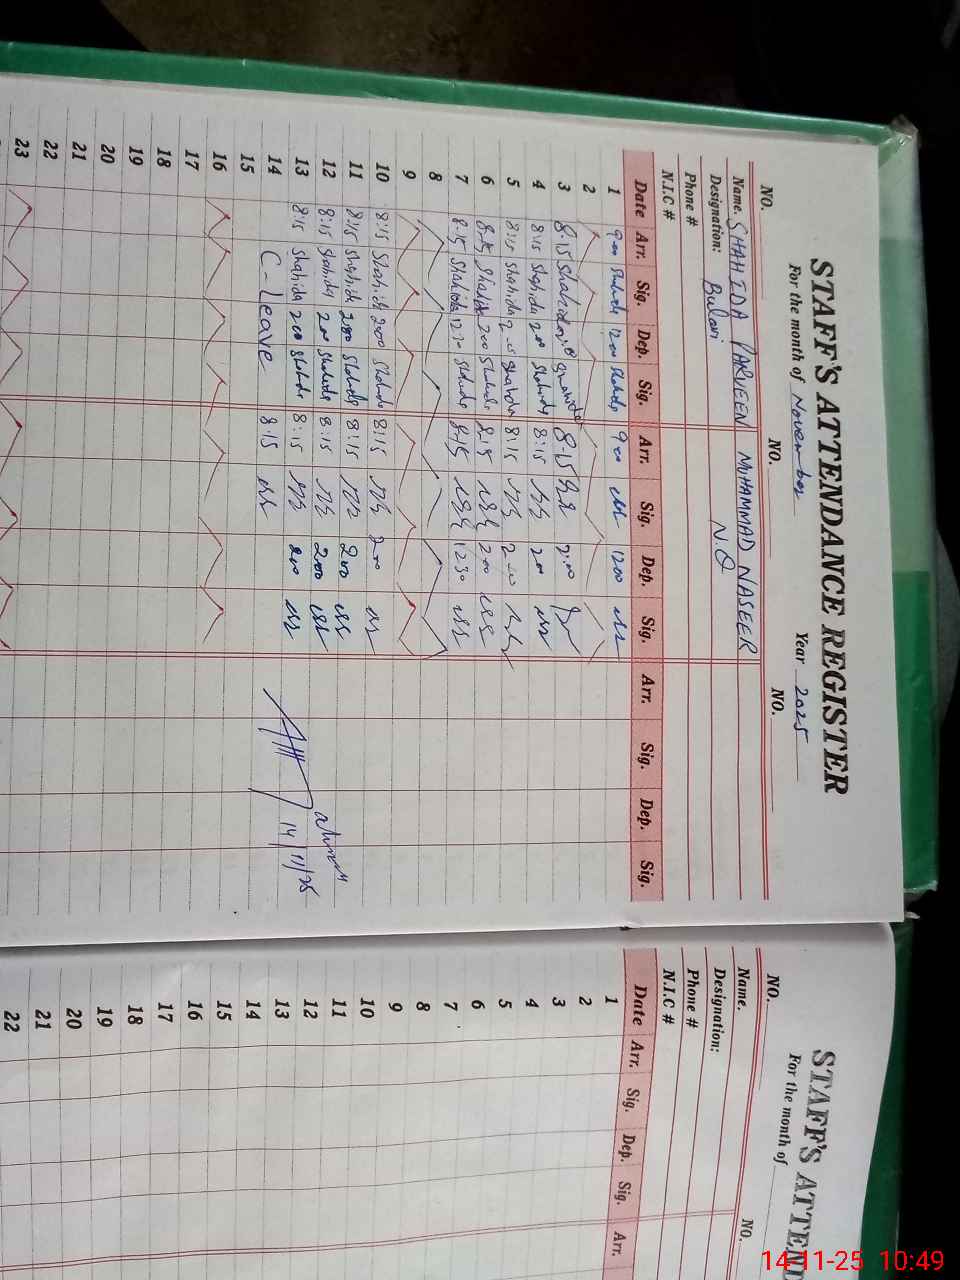 STAFF'S ATTENDANCE REGISTER
For the month of November Year 2025
NO. NO. NO.
Name. SHAHIDA PARVEEN MUHAMMAD NASEER
Designation: N.Q
Phone #
N.I.C #
Date Arr. Sig. Dep. Sig. Arr. Sig. Dep. Sig. Arr. Sig. Dep. Sig.
1 9:00 Shahida 1200 Shahida 9:00 1200
2
3 8:15 Shahida 8:15 2:00
4 8:15 Shahida 200 Shahida 8:15 200
5 8:15 Shahida Shahida 8:15
6 8:15 Shahida 200 Shahida 8:15 200
7 8:15 Shahida 1230 Shahida 8:15 1230
8
9
10 8:15 Shahida 200 Shahida 8:15 200
11 8:15 Shahida 200 Shahida 8:15 200
12 8:15 Shahida 200 Shahida 8:15 200
13 8:15 Shahida 200 Shahida 8:15 200
14 C-Leave 8:15
15
16
17
18
19
20
21
22
23
14/11/25
STAFF'S ATTEND
For the month of
NO. NO.
Name.
Designation:
Phone #
N.I.C #
Date Arr. Sig. Dep. Sig. Arr.
1
2
3
4
5
6
7
8
9
10
11
12
13
14
15
16
17
18
19
20
21
22
14-11-25 10:49